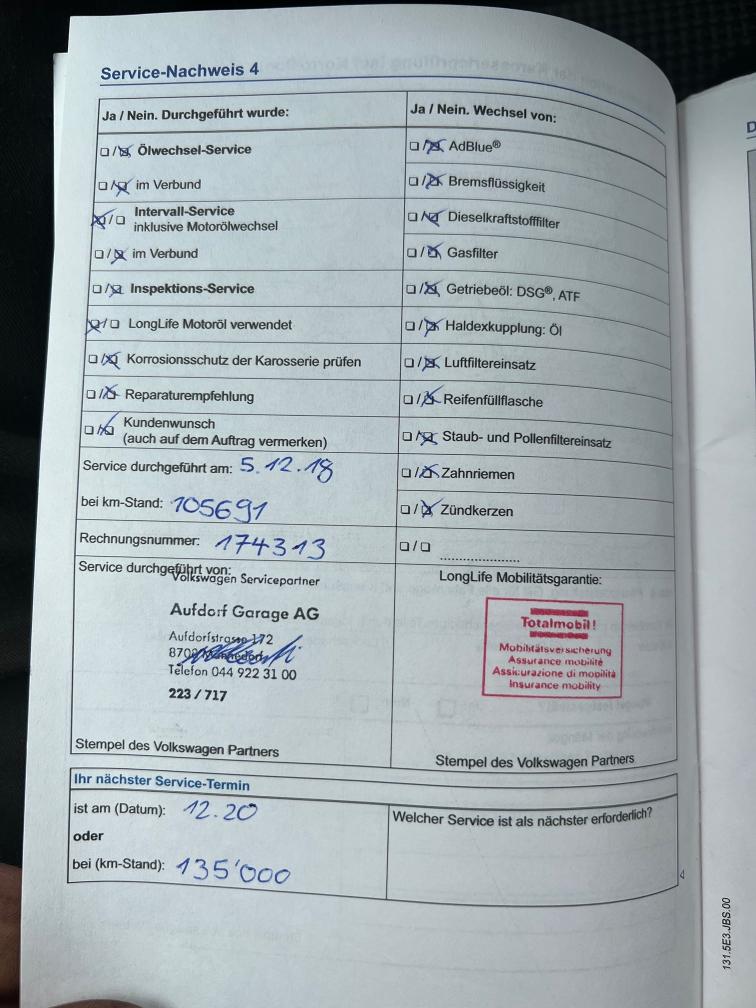 Service-Nachweis 4
Ja / Nein. Durchgeführt wurde:
☐/☒ Ölwechsel-Service
☐/☒ im Verbund
☒/☐ Intervall-Service
inklusive Motorölwechsel
☐/☒ im Verbund
☐/☒ Inspektions-Service
☒/☐ LongLife Motoröl verwendet
☐/☒ Korrosionsschutz der Karosserie prüfen
☐/☒ Reparaturempfehlung
☐/☒ Kundenwunsch
(auch auf dem Auftrag vermerken)
Service durchgeführt am: 5.12.18
bei km-Stand: 105691
Rechnungsnummer: 174313
Service durchgeführt von:
Volkswagen Servicepartner
Aufdorf Garage AG
Aufdorfstrasse 172
8708 Männedorf
Telefon 044 922 31 00
223 / 717
Stempel des Volkswagen Partners
Ja / Nein. Wechsel von:
☐/☒ AdBlue®
☐/☒ Bremsflüssigkeit
☐/☒ Dieselkraftstofffilter
☐/☒ Gasfilter
☐/☒ Getriebeöl: DSG®, ATF
☐/☒ Haldexkupplung: Öl
☐/☒ Luftfiltereinsatz
☐/☒ Reifenfüllflasche
☐/☒ Staub- und Pollenfiltereinsatz
☐/☒ Zahnriemen
☐/☒ Zündkerzen
☐/☐ ....................
LongLife Mobilitätsgarantie:
Totalmobil!
Mobilitätsversicherung
Assurance mobilité
Assicurazione di mobilità
Insurance mobility
Stempel des Volkswagen Partners
Ihr nächster Service-Termin
ist am (Datum): 12.20
oder
bei (km-Stand): 135'000
Welcher Service ist als nächster erforderlich?
131.5E3.JBS.00
D